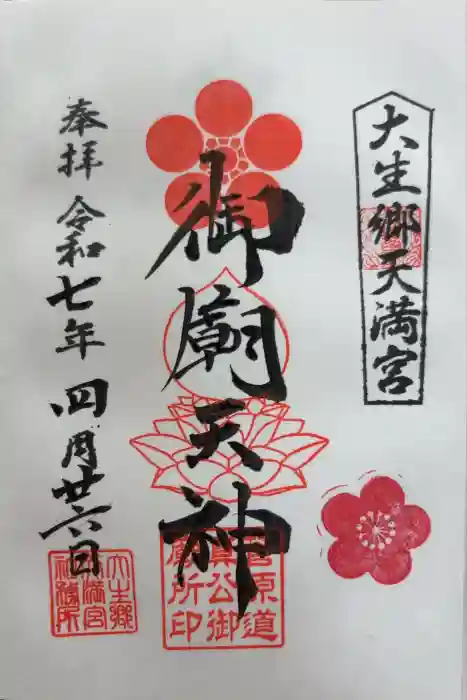 大生郷天満宮
御廟天神
奉拝 令和七年四月廿六日
菅原道
真公御
廟所印
大生郷
天満宮
社務所